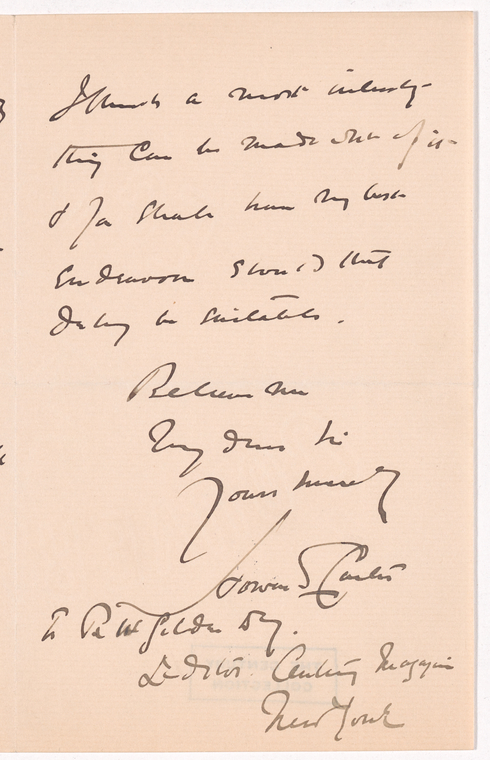 I think a most interesting
thing can be made out of it
& you shall have my best
Endeavour should that
delay be suitable.
Believe me
My dear Sir
Yours sincerely
To R W Gilder Esq.
Editor Century Magazine
New York